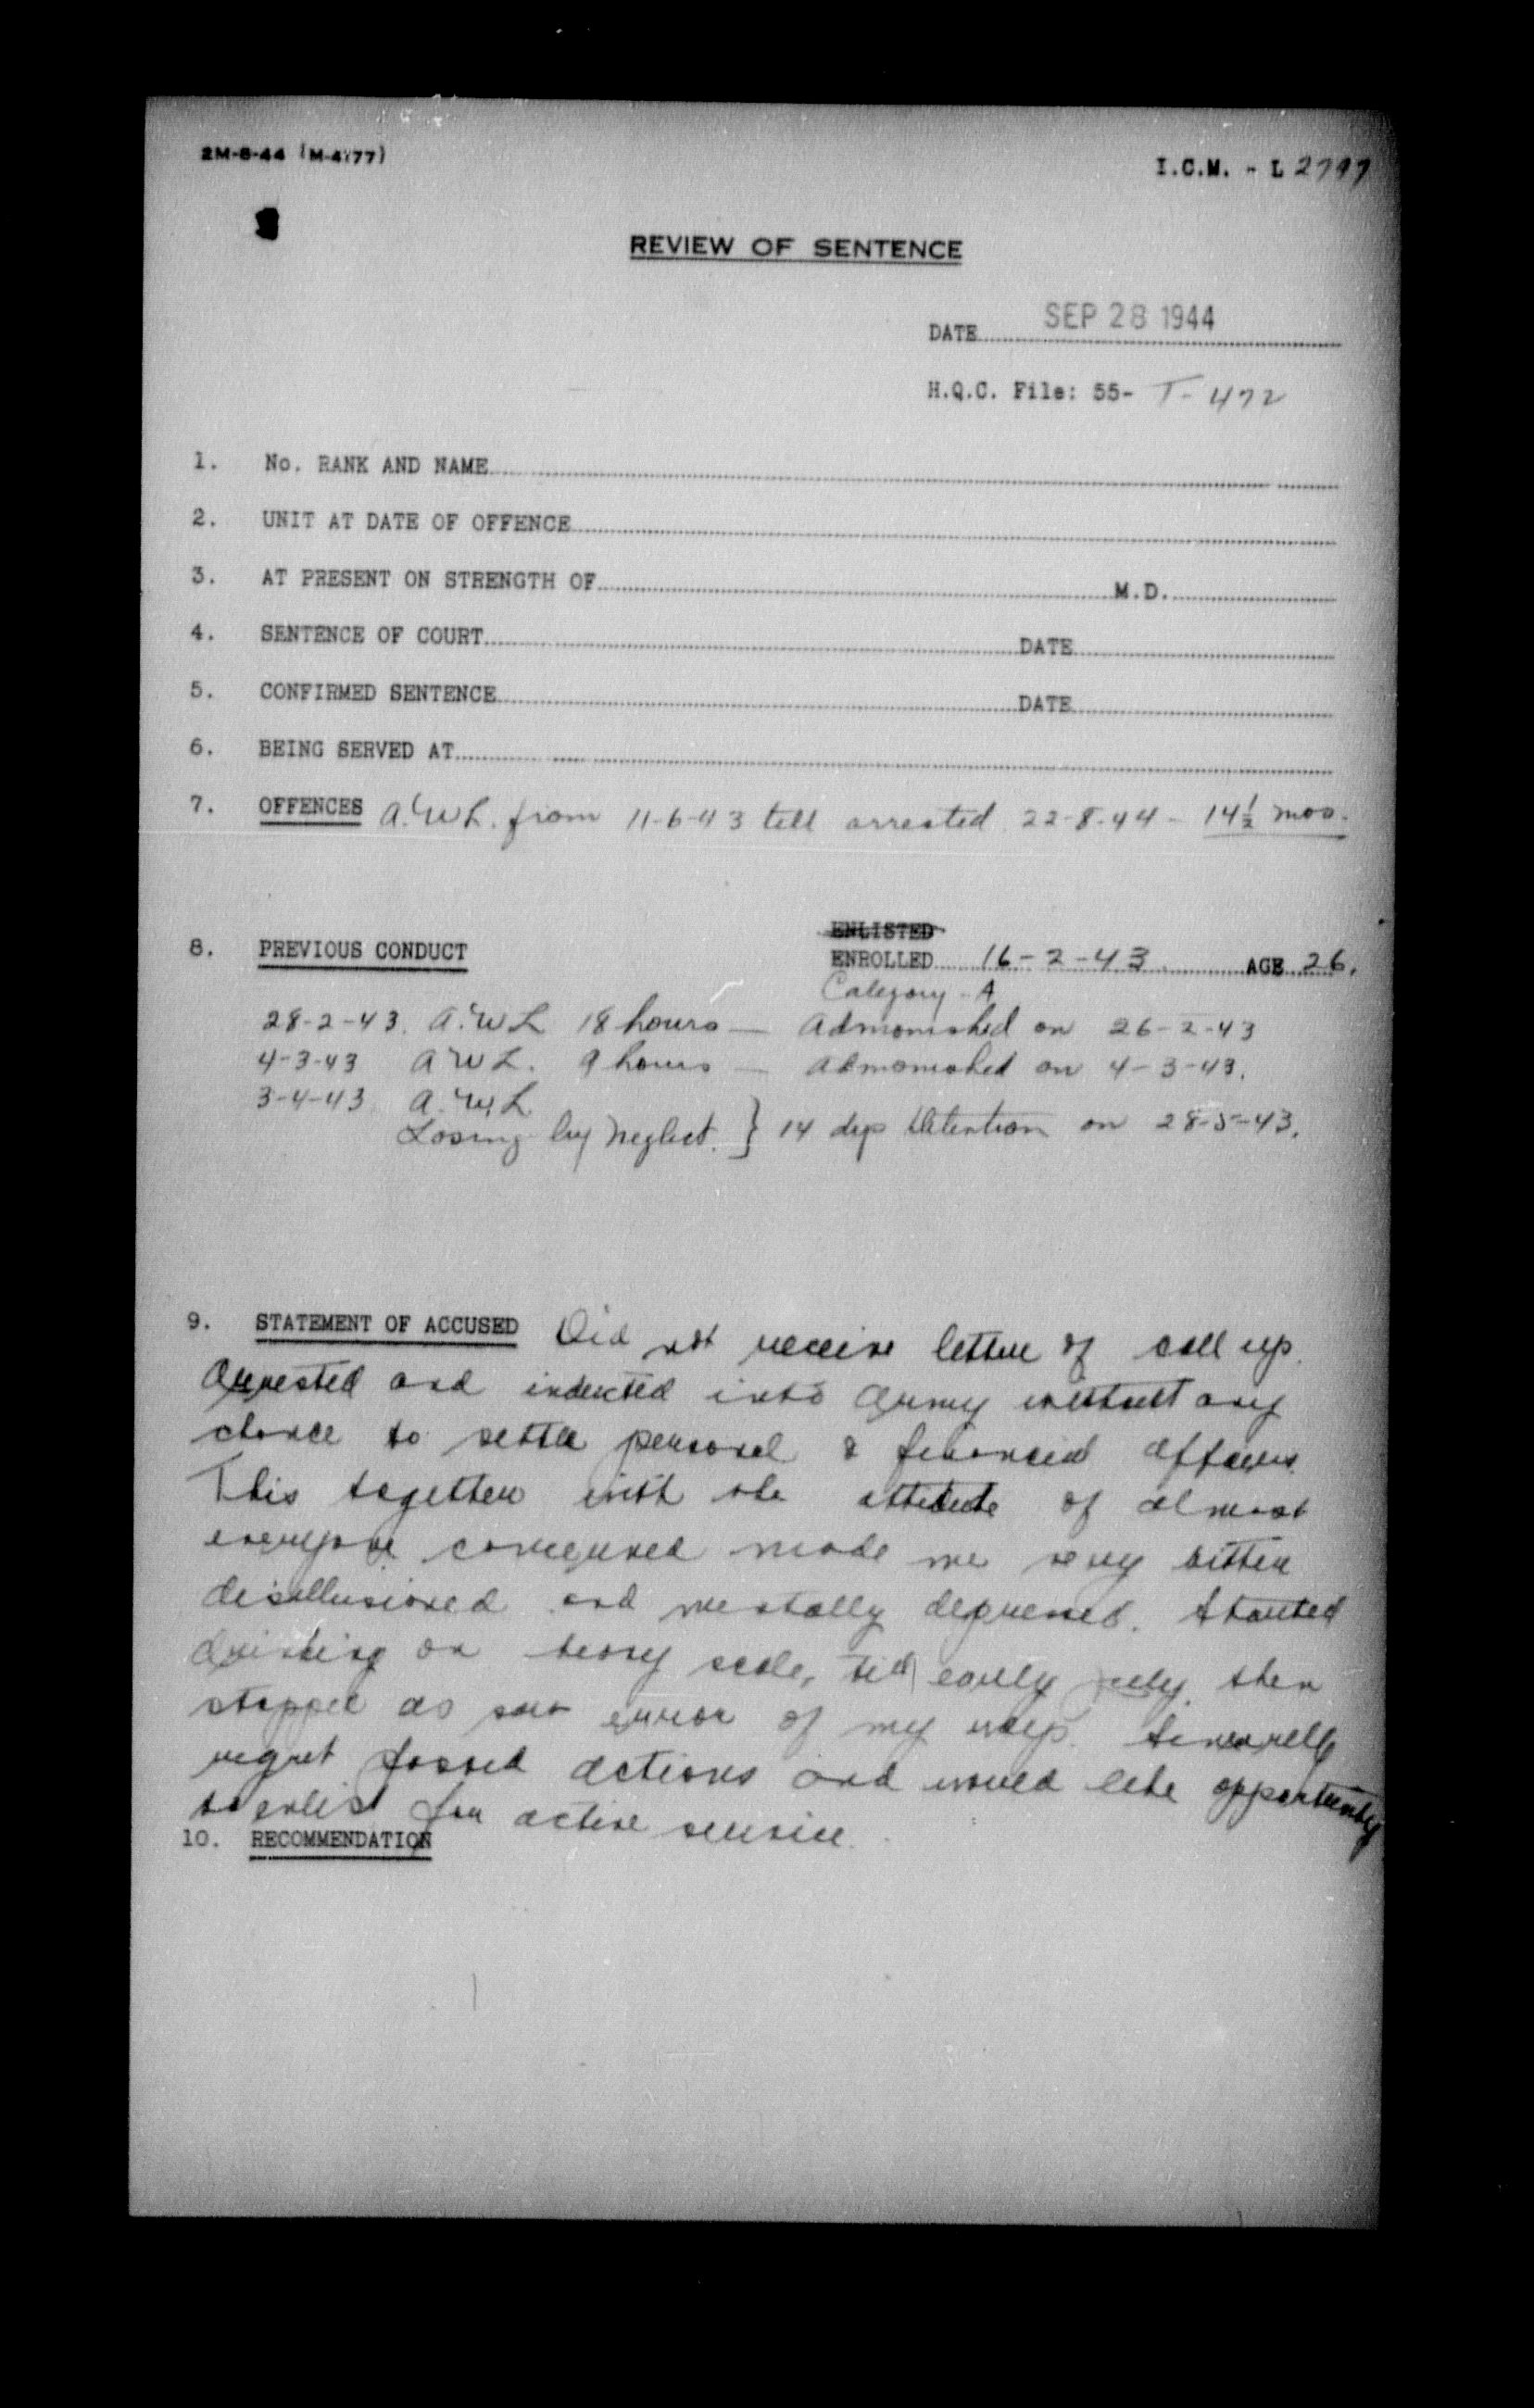 2M-8-44 (M-4177)
I.C.M. - L 2797
REVIEW OF SENTENCE
DATE SEP 28 1944
H.Q.C. File: 55- T-472
1. No. RANK AND NAME
2. UNIT AT DATE OF OFFENCE
3. AT PRESENT ON STRENGTH OF M.D.
4. SENTENCE OF COURT DATE
5. CONFIRMED SENTENCE DATE
6. BEING SERVED AT
7. OFFENCES A.W.L. from 11-6-43 till arrested 22-8-44 - 14½ mos.
ENLISTED
8. PREVIOUS CONDUCT ENROLLED 16-2-43 AGE 26.
Category - A
28-2-43. A.W.L 18 hours — Admonished on 26-2-43
4-3-43 A W L. 9 hours — Admonished on 4-3-43.
3-4-43 A.W.L
Losing by Neglect. } 14 dys Detention on 28-5-43.
9. STATEMENT OF ACCUSED Did not receive letter of call up.
Arrested and inducted into Army without any
chance to settle personal & financial affairs.
This together with the attitude of almost
everyone concerned made me very bitter
disillusioned and mentally depressed. Started
drinking on heavy scale, till early July, then
stopped as saw error of my ways. Sincerely
regret passed actions and would like opportunity
to enlist for active service.
10. RECOMMENDATION